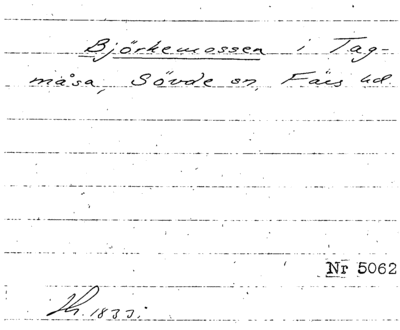 Björkemossen i Tag-
måsa, Sövde sn, Färs hd.
Nr 5062
1833.